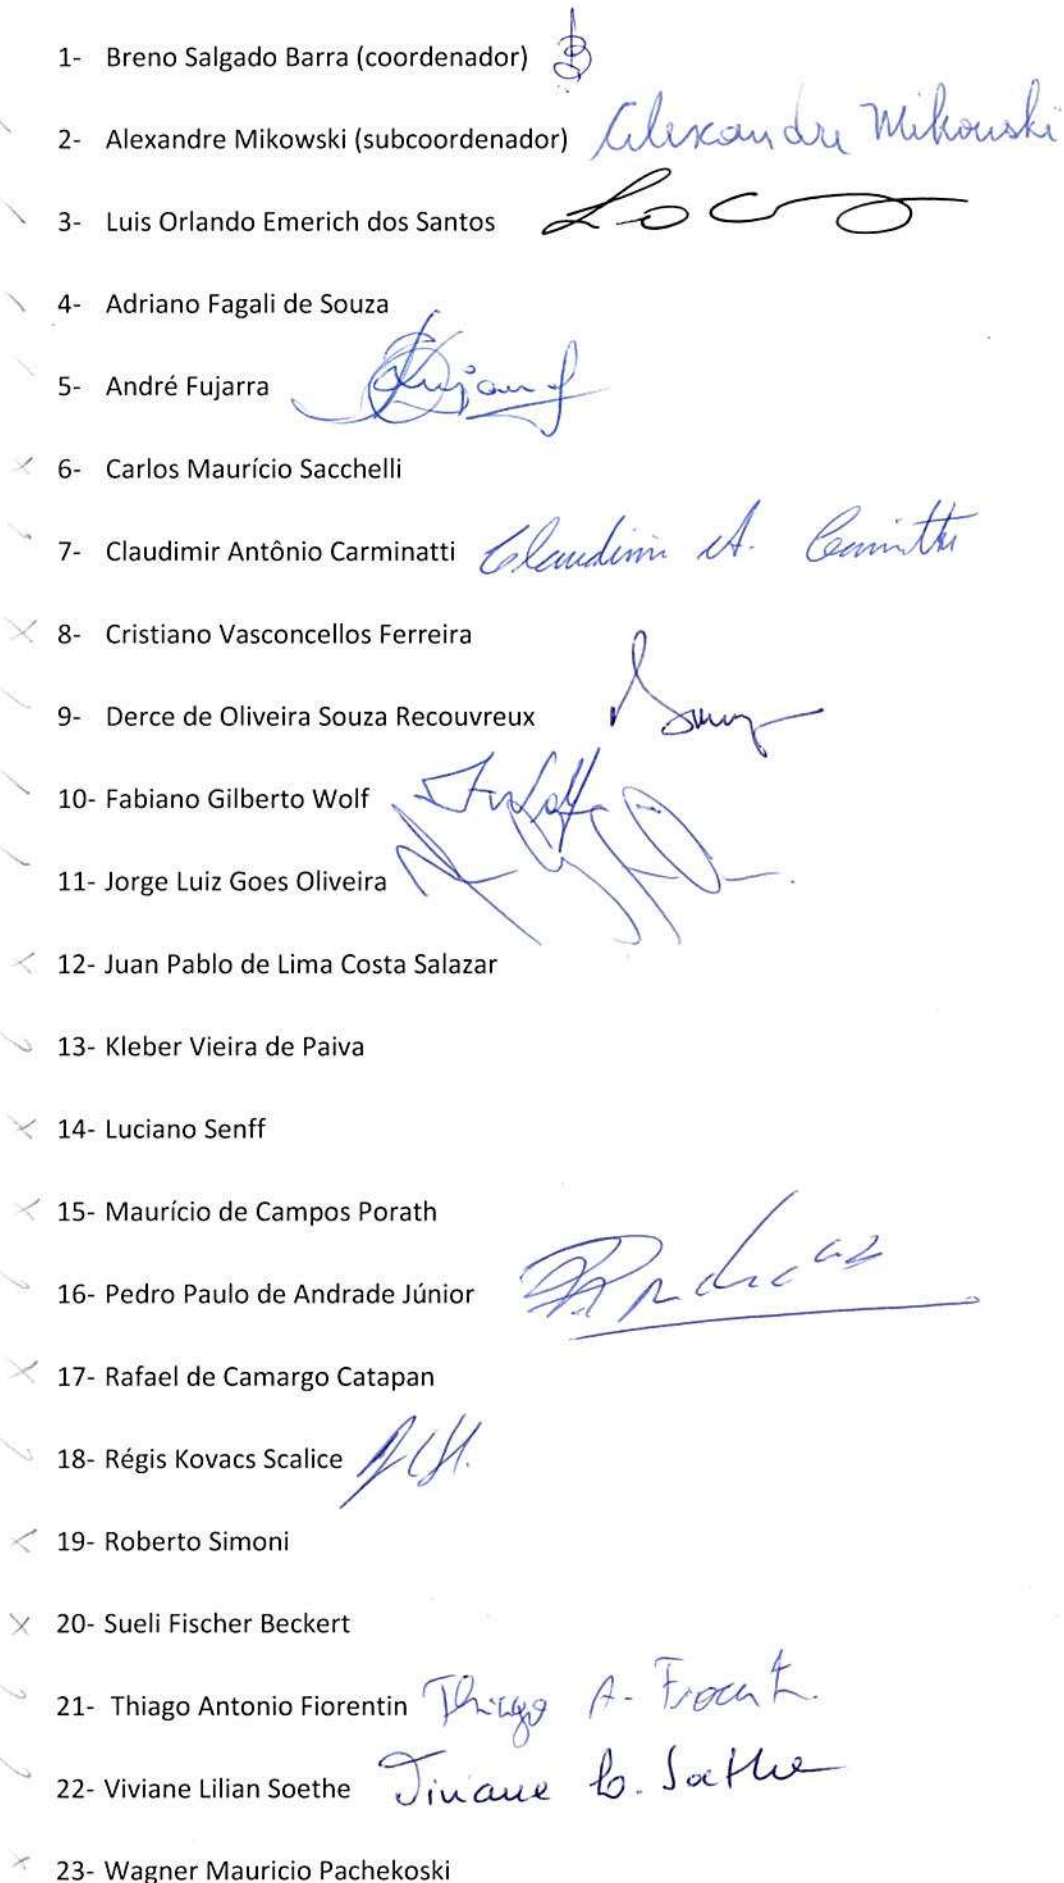 1- Breno Salgado Barra (coordenador)
2- Alexandre Mikowski (subcoordenador) Alexandre Mikowski
3- Luis Orlando Emerich dos Santos
4- Adriano Fagali de Souza
5- André Fujarra
6- Carlos Maurício Sacchelli
7- Claudimir Antônio Carminatti
8- Cristiano Vasconcellos Ferreira
9- Derce de Oliveira Souza Recouvreux
10- Fabiano Gilberto Wolf
11- Jorge Luiz Goes Oliveira
12- Juan Pablo de Lima Costa Salazar
13- Kleber Vieira de Paiva
14- Luciano Senff
15- Maurício de Campos Porath
16- Pedro Paulo de Andrade Júnior
17- Rafael de Camargo Catapan
18- Régis Kovacs Scalice
19- Roberto Simoni
20- Sueli Fischer Beckert
21- Thiago Antonio Fiorentin Thiago A.
22- Viviane Lilian Soethe Viviane L. Soethe
23- Wagner Mauricio Pachekoski